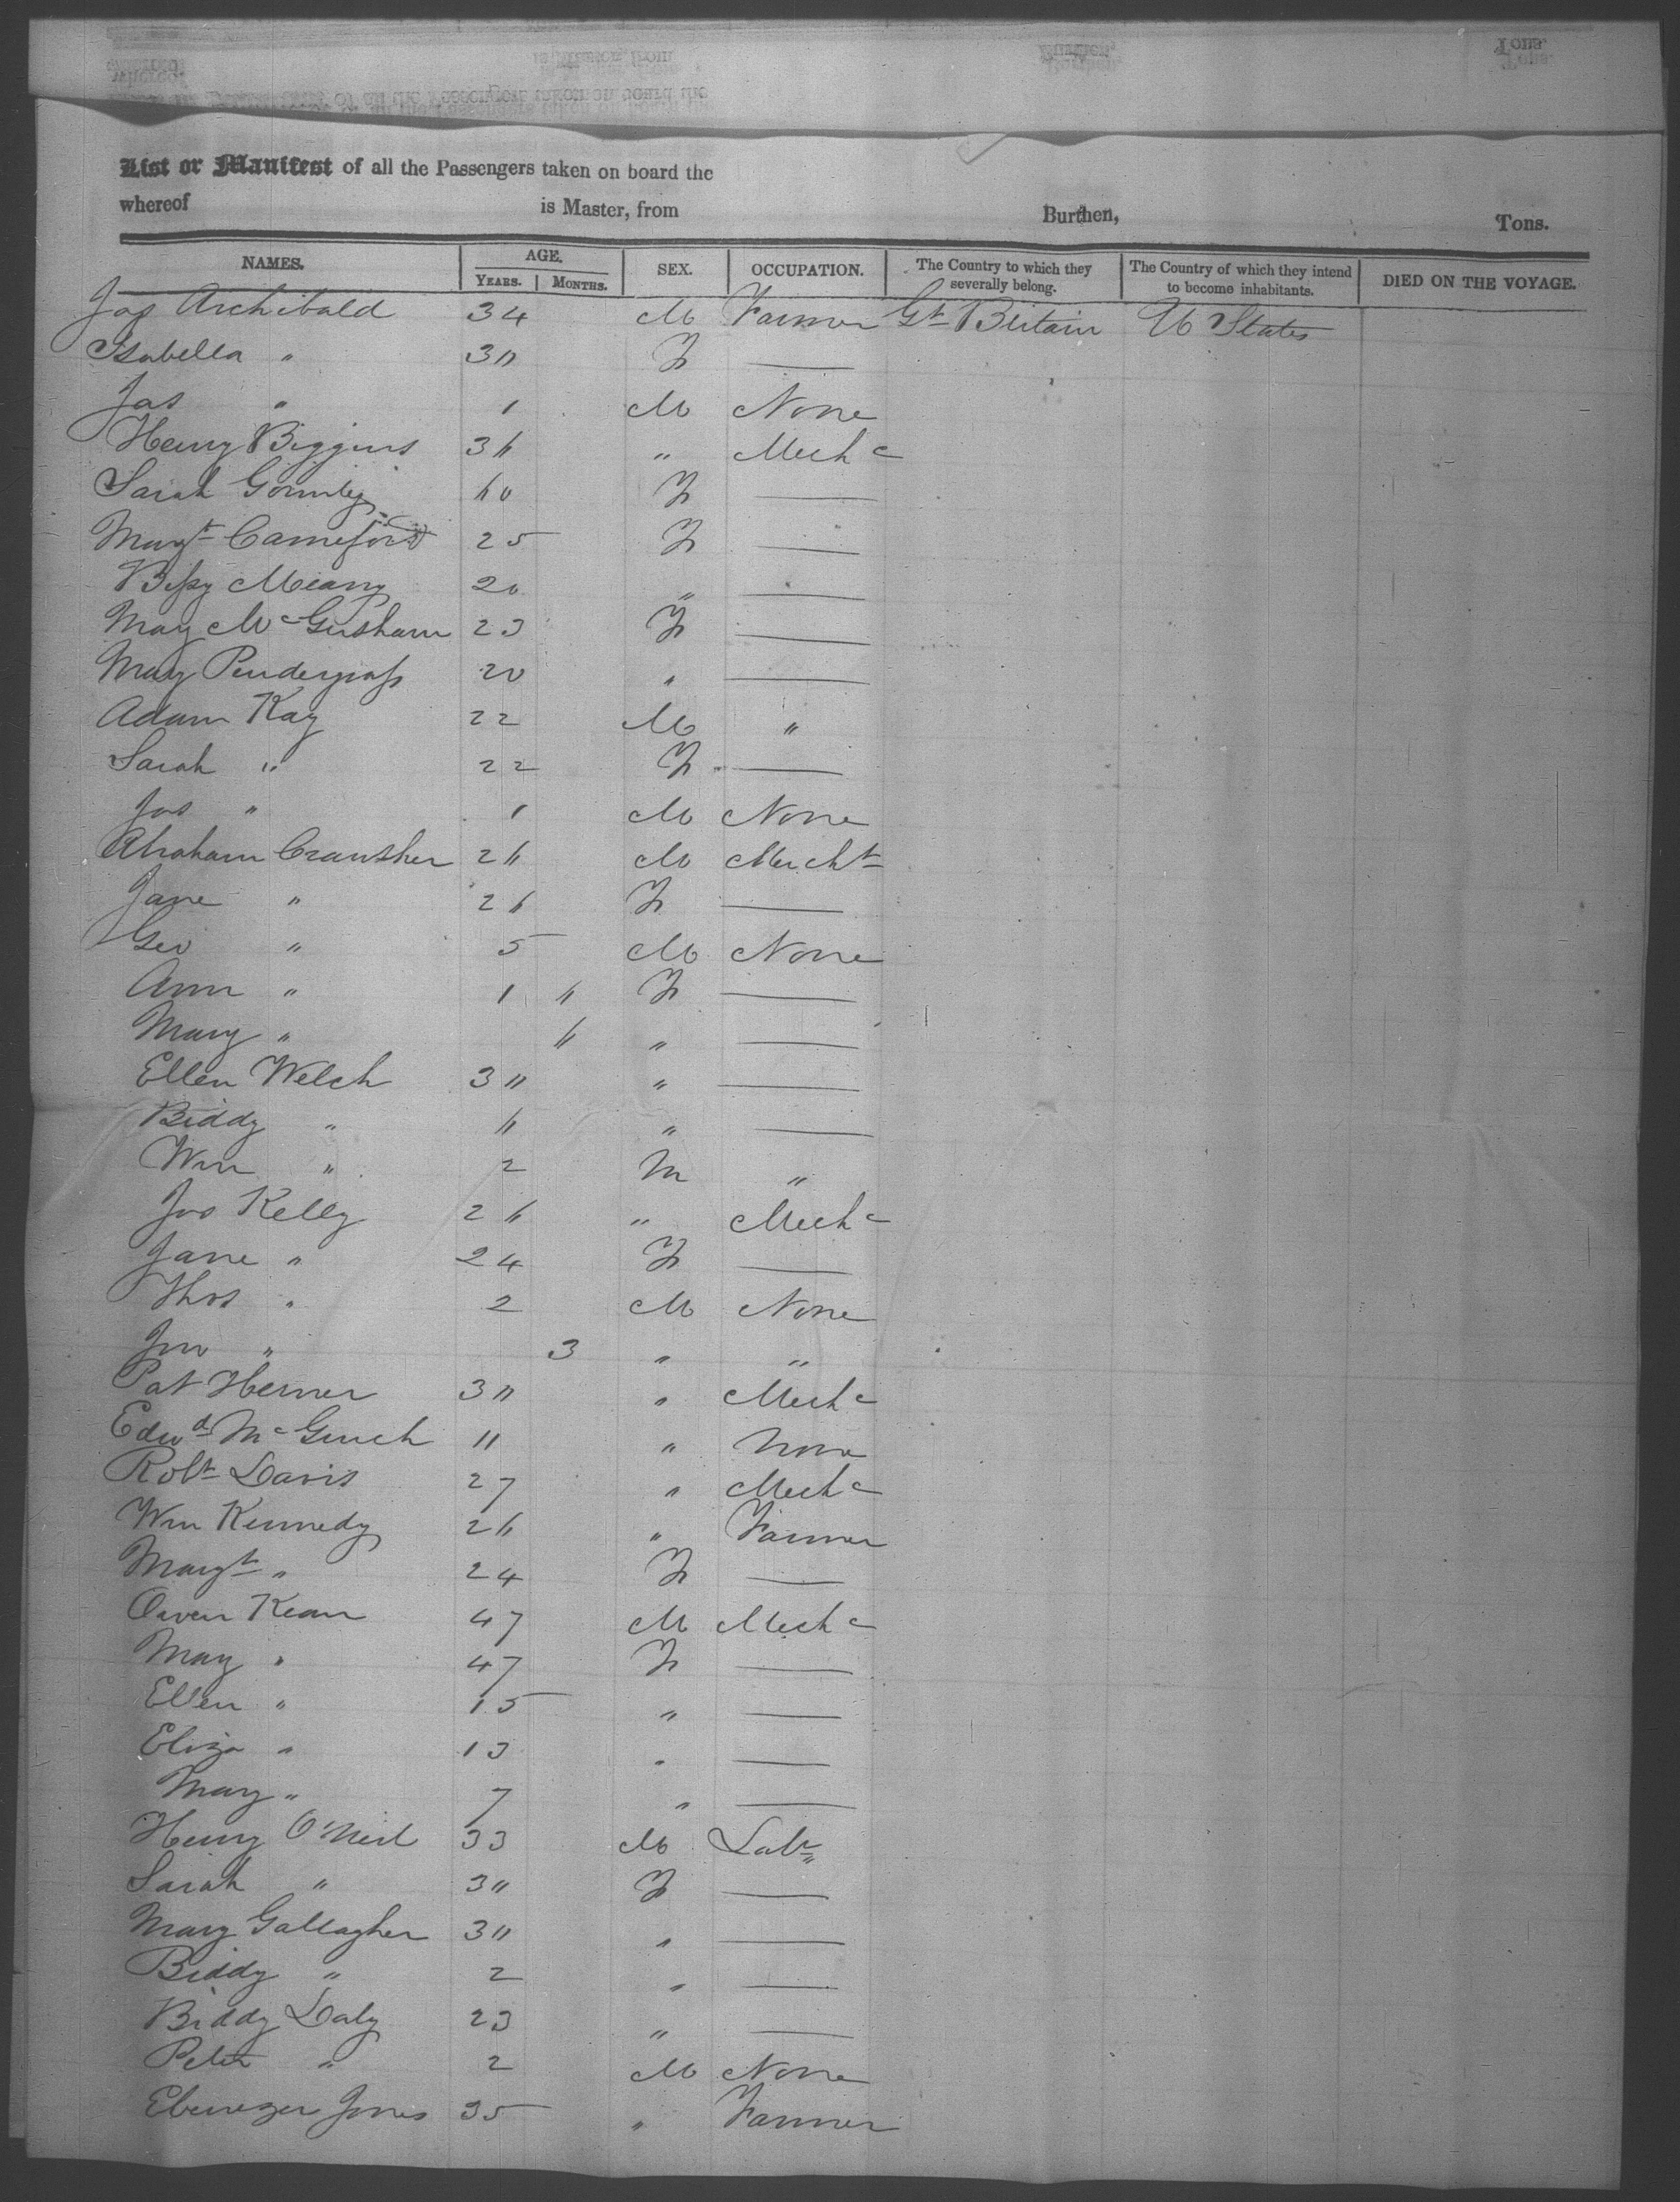 List or Manifest of all the Passengers taken on board the
whereof is Master, from Burthen, Tons.
NAMES. AGE. YEARS. MONTHS. SEX. OCCUPATION. The Country to which they severally belong. The Country of which they intend to become inhabitants. DIED ON THE VOYAGE.
Jas Archibald 34 M Farmer Gt Britain U States
Isabella " 30 F —
Jas " 1 M None
Henry Biggins 36 " Mechc
Sarah 60 F —
Margt 25 F —
Bessy 20 " —
Mary 23 F —
Mary Pendergrass 20 " —
Adam Kay 22 M "
Sarah " 22 F —
Jas " 1 M None
Abraham Crawsher 26 M Mercht
Jane " 26 F —
Geo " 5 M None
Ann " 1 6 F —
Mary " 6 " —
Ellen Welch 30 " —
Biddy " 6 " —
Wm " 2 M "
Jas Kelly 26 " Mechc
Jane " 24 F —
Thos " 2 M None
Jno " 3 " "
Pat 30 " Mechc
Edwd 11 " None
Robt Davis 27 " Mechc
Wm Kennedy 26 " Farmer
Margt " 24 F —
Owen Kean 47 M Mechc
Mary " 47 F —
Ellen " 15 " —
Eliza " 13 " —
Mary " 7 " —
Henry O'Neil 33 M Labr
Sarah " 30 F —
Mary Gallagher 30 " —
Biddy " 2 " —
Biddy Daly 23 " —
Peter " 2 M None
Ebenezer Jones 35 " Farmer